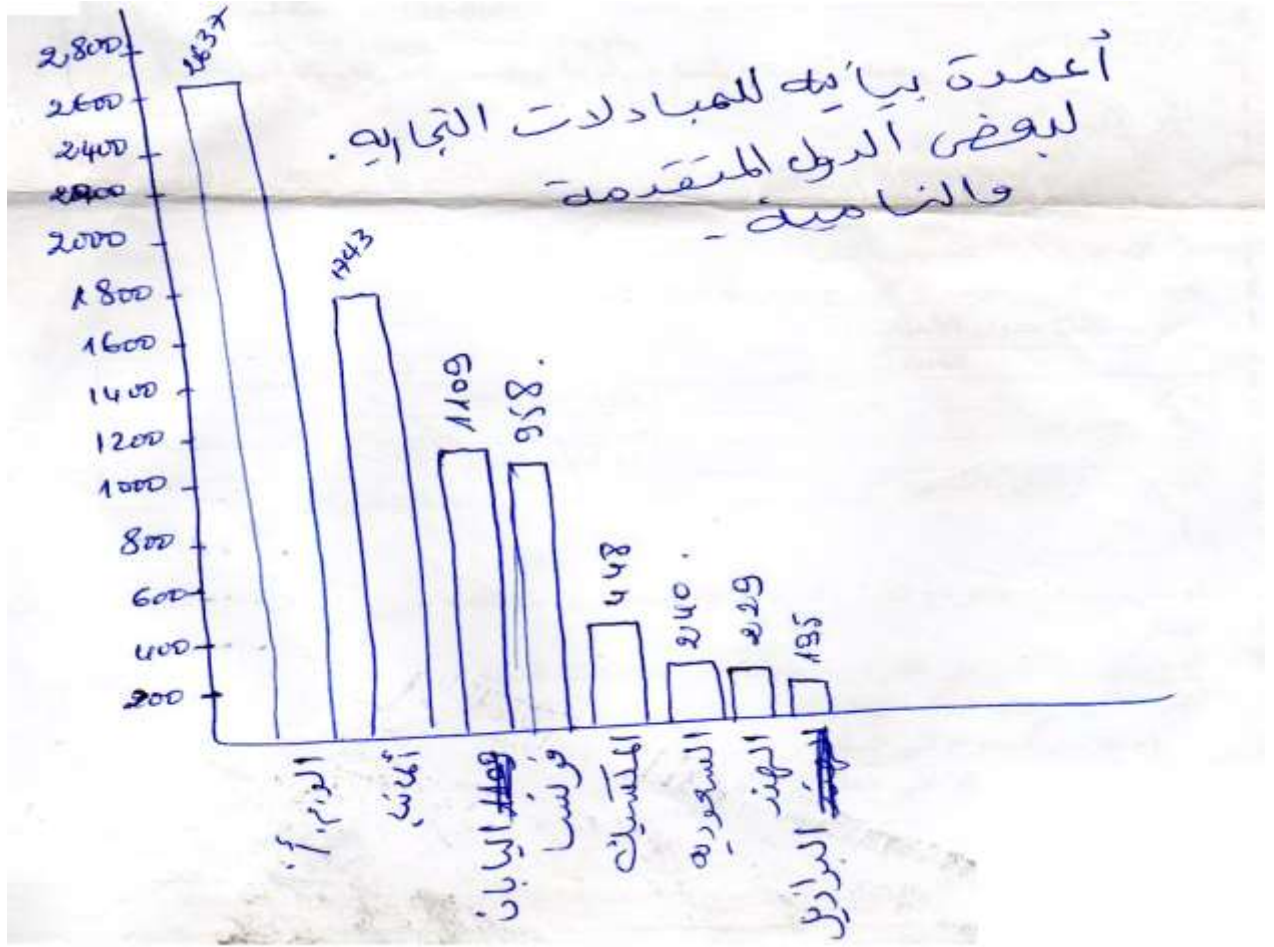 أعمدة بيانية للمبادلات التجارية.
لبعض الدول المتقدمة
والنامية.
2800
2600
2400
2000
1800
1600
1400
1200
1000
800
600
400
200
2637
1743
1109
958.
448
240.
229
195
الو.م.أ.
ألمانيا
اليابان
فرنسا
المكسيك
السعودية
الهند
البرازيل